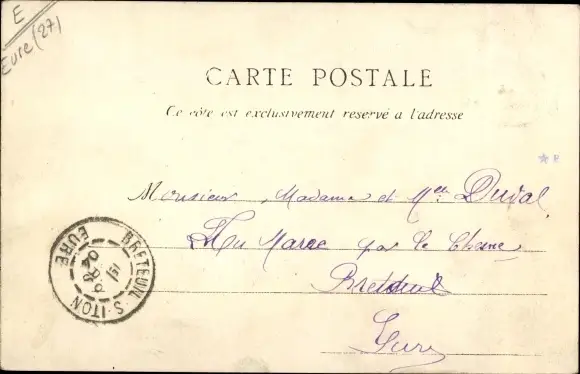 E
Eure (27)
CARTE POSTALE
Ce côté est exclusivement réservé a l'adresse
Monsieur, Madame et Melle Duval
Mare par le Chesne
Breteuil
Eure
BRETEUIL-S-ITON
EURE